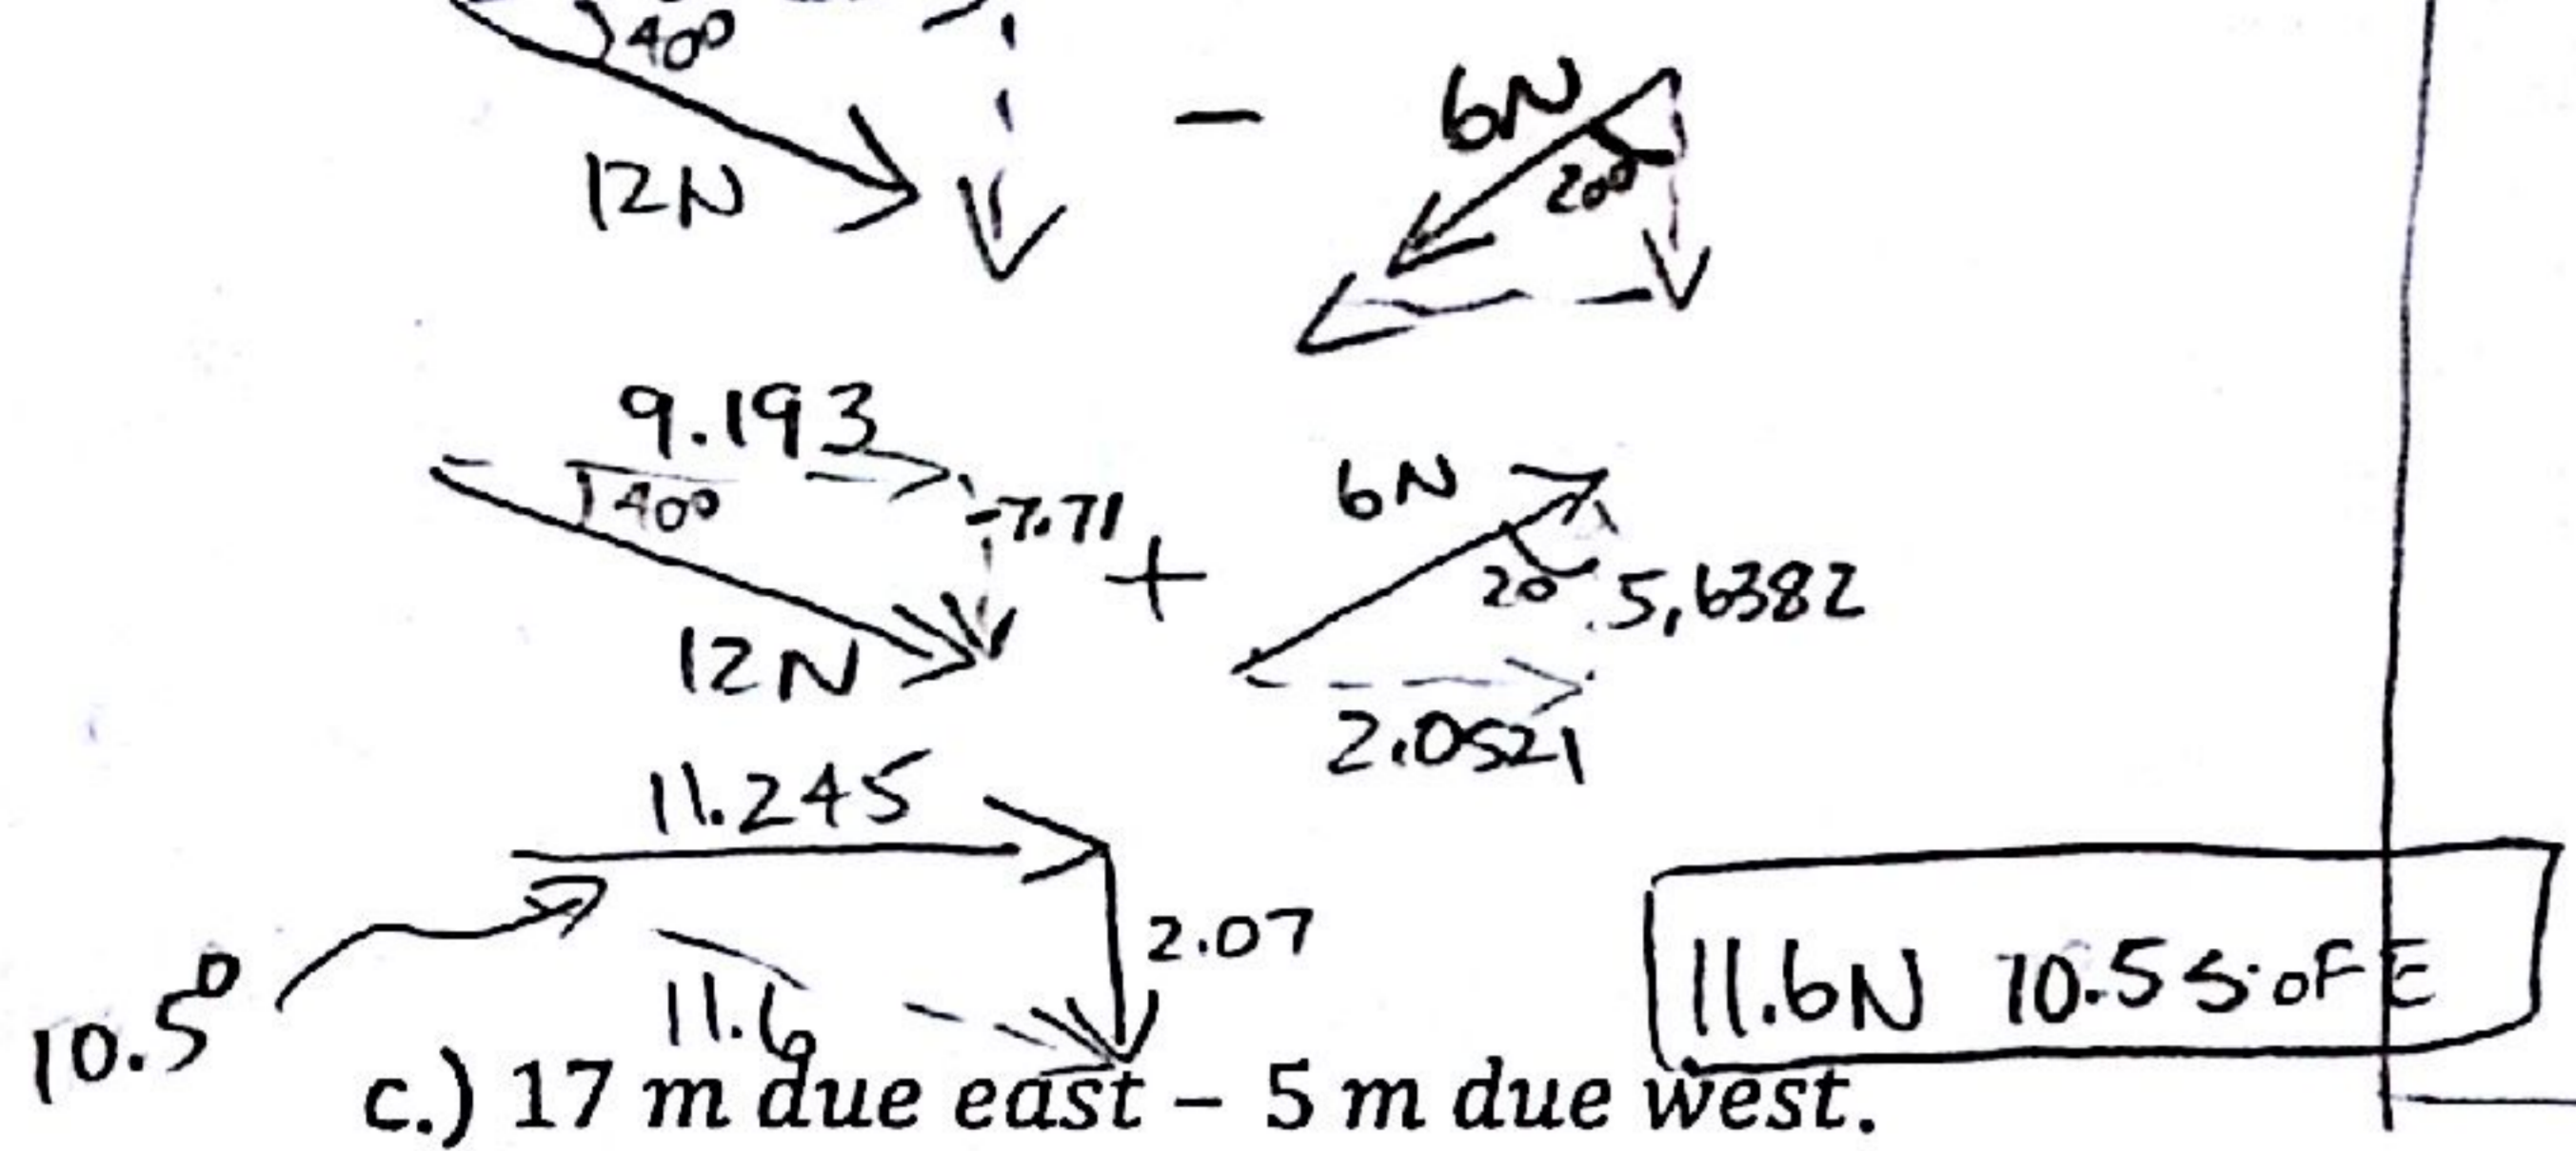 40°
12N
-
6N
20°
9.193
40°
-7.71
12N
+
6N
20
5,6382
2.0521
11.245
2.07
10.5°
11.6
11.6N 10.5 S. of E
c.) 17 m due east – 5 m due west.